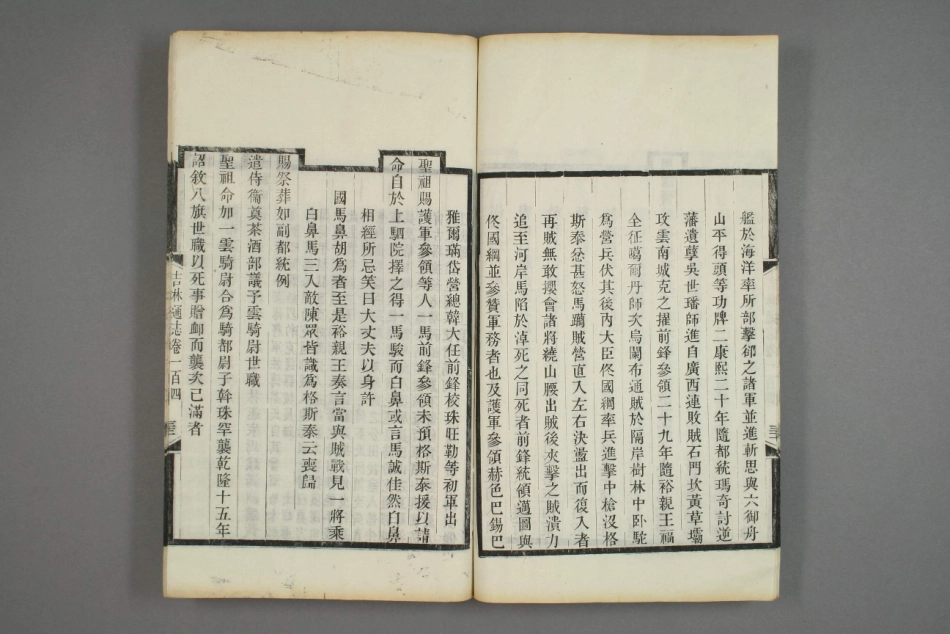 艦於海洋率所部擊郤之諸軍並進斬思與六御舟
山平得頭等功牌二康熙二十年隨都統瑪奇討逆
藩遺孽吳世璠師進自廣西連敗賊石門坎黃草壩
攻雲南城克之擢前鋒參領二十九年隨裕親王福
全征噶爾丹師次烏闌布通賊於隔岸樹林中卧駝
為營兵伏其後內大臣佟國綱率兵進擊中槍沒格
斯泰忿甚怒馬躪賊營直入左右決盪出而復入者
再賊無敢攖會諸將繞山腰出賊後夾擊之賊潰力
追至河岸馬陷於淖死之同死者前鋒統領邁圖與
佟國綱並參贊軍務者也及護軍參領赫色巴巴錫巴
雅爾瑞岱營總韓大任前鋒校珠旺勒等初軍出
聖祖賜護軍參領等人一馬前鋒參領未預格斯泰援以請
命自於上駟院擇之得一馬駿而白鼻或言馬誠佳然白鼻
相經所忌笑曰大丈夫以身許
國馬鼻胡為者至是裕親王奏言當與賊戰見一將乘
白鼻馬三入敵陳眾皆識為格斯泰云喪歸
賜祭葬如副都統例
遣侍衞奠茶酒部議予雲騎尉世職
聖祖命加一雲騎尉合為騎都尉子幹珠罕襲乾隆十五年
詔敘八旗世職以死事贈卹而襲次已滿者
吉林通志卷一百四